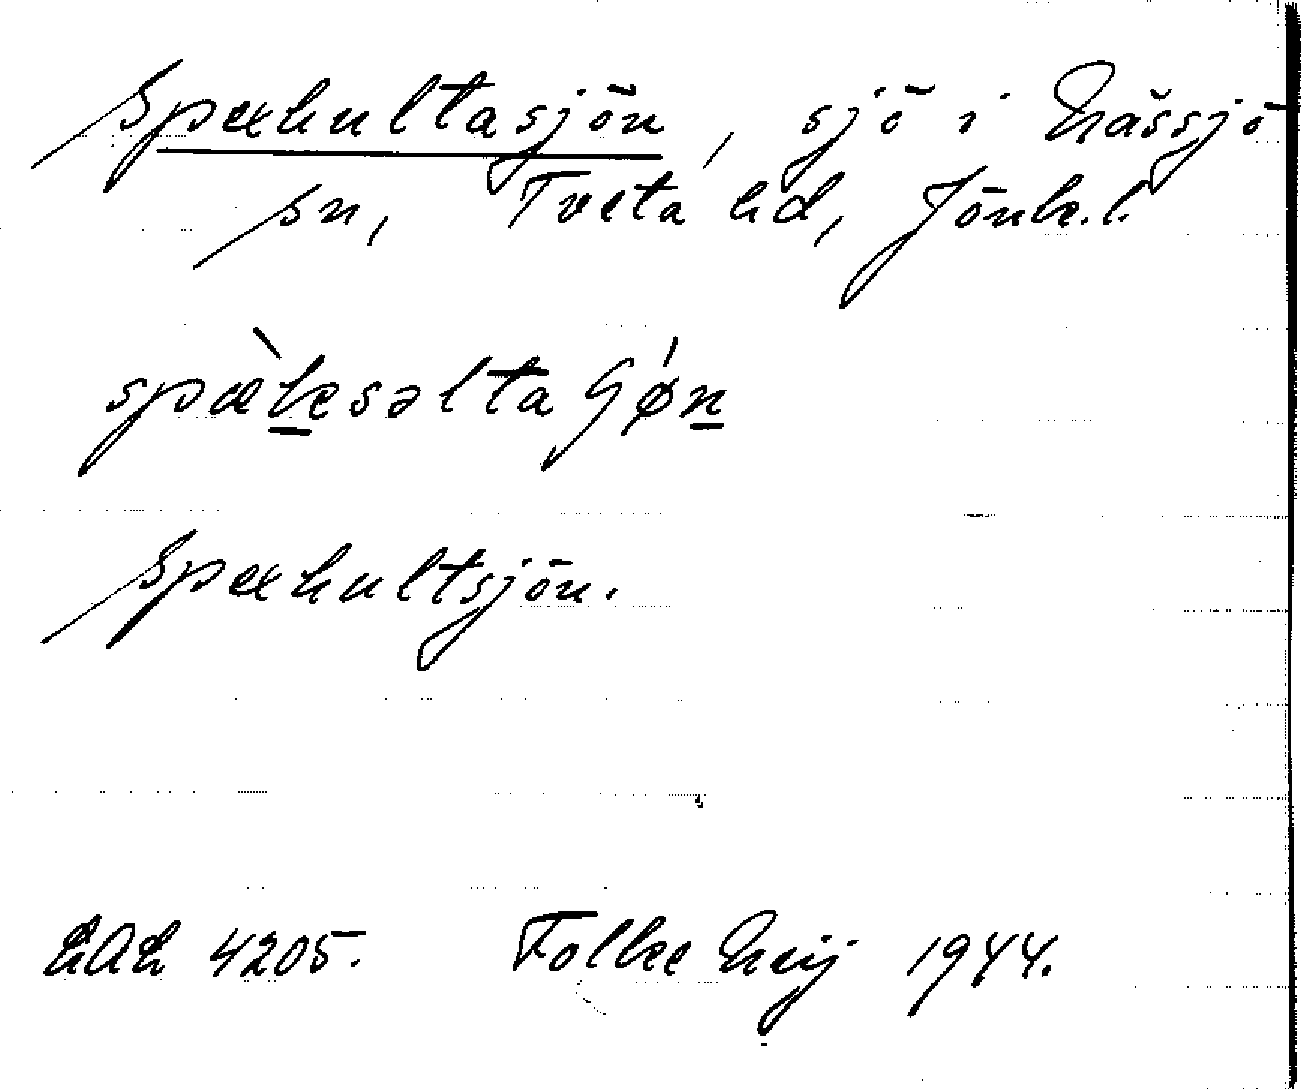 Spexhultasjön, sjö i Nässjö
sn, Tveta hd, Jönk. l.
spæ̀k̲səltaʃǿn̲
Spexhultsjön.
4205. Folke Heij 1944.